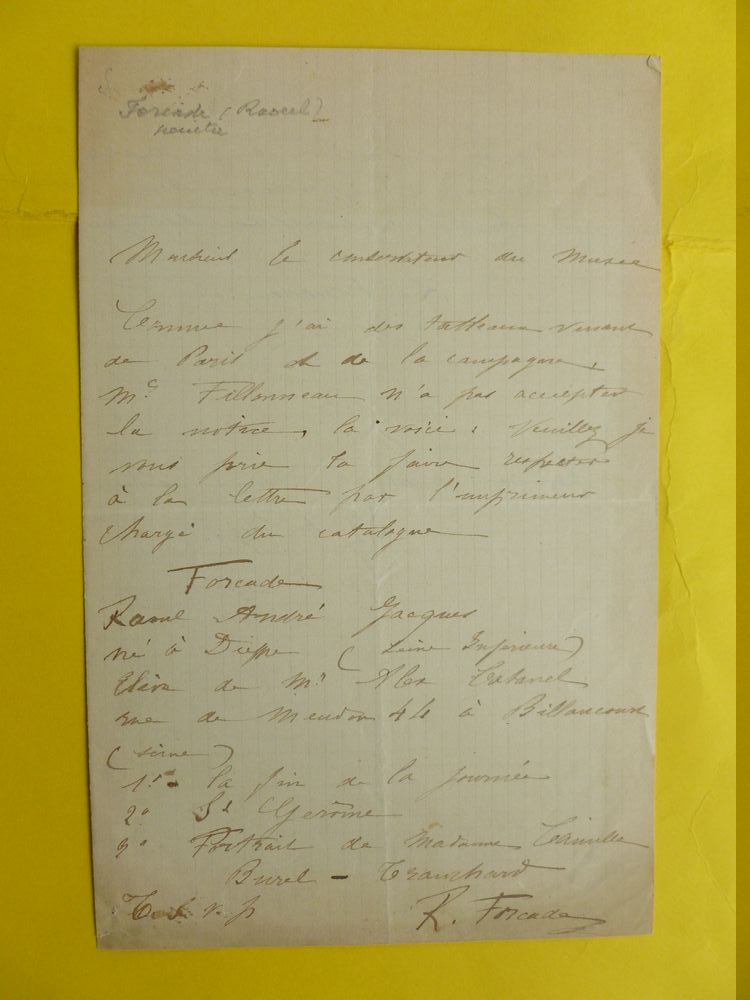 Forcade (Raoul)
peintre
Monsieur le conservateur du Musée
Comme j'ai des tableaux venant
de Paris et de la campagne,
Mr Fillonneau n'a pas accepter
la notice, la voici. Veuillez je
vous prie la faire respecter
à la lettre par l'imprimeur
chargé du catalogue
Forcade
Raoul André Jacques
né à Dieppe (Seine Inférieure)
Elève de Mr Alex Cabanel
rue de Meudon 44 à Billancourt
(Seine)
1º - la fin de la journée
2º St Gerôme
3º Portrait de Madame Camille
Burel - Tranchard
T. S. v. p
R. Forcade